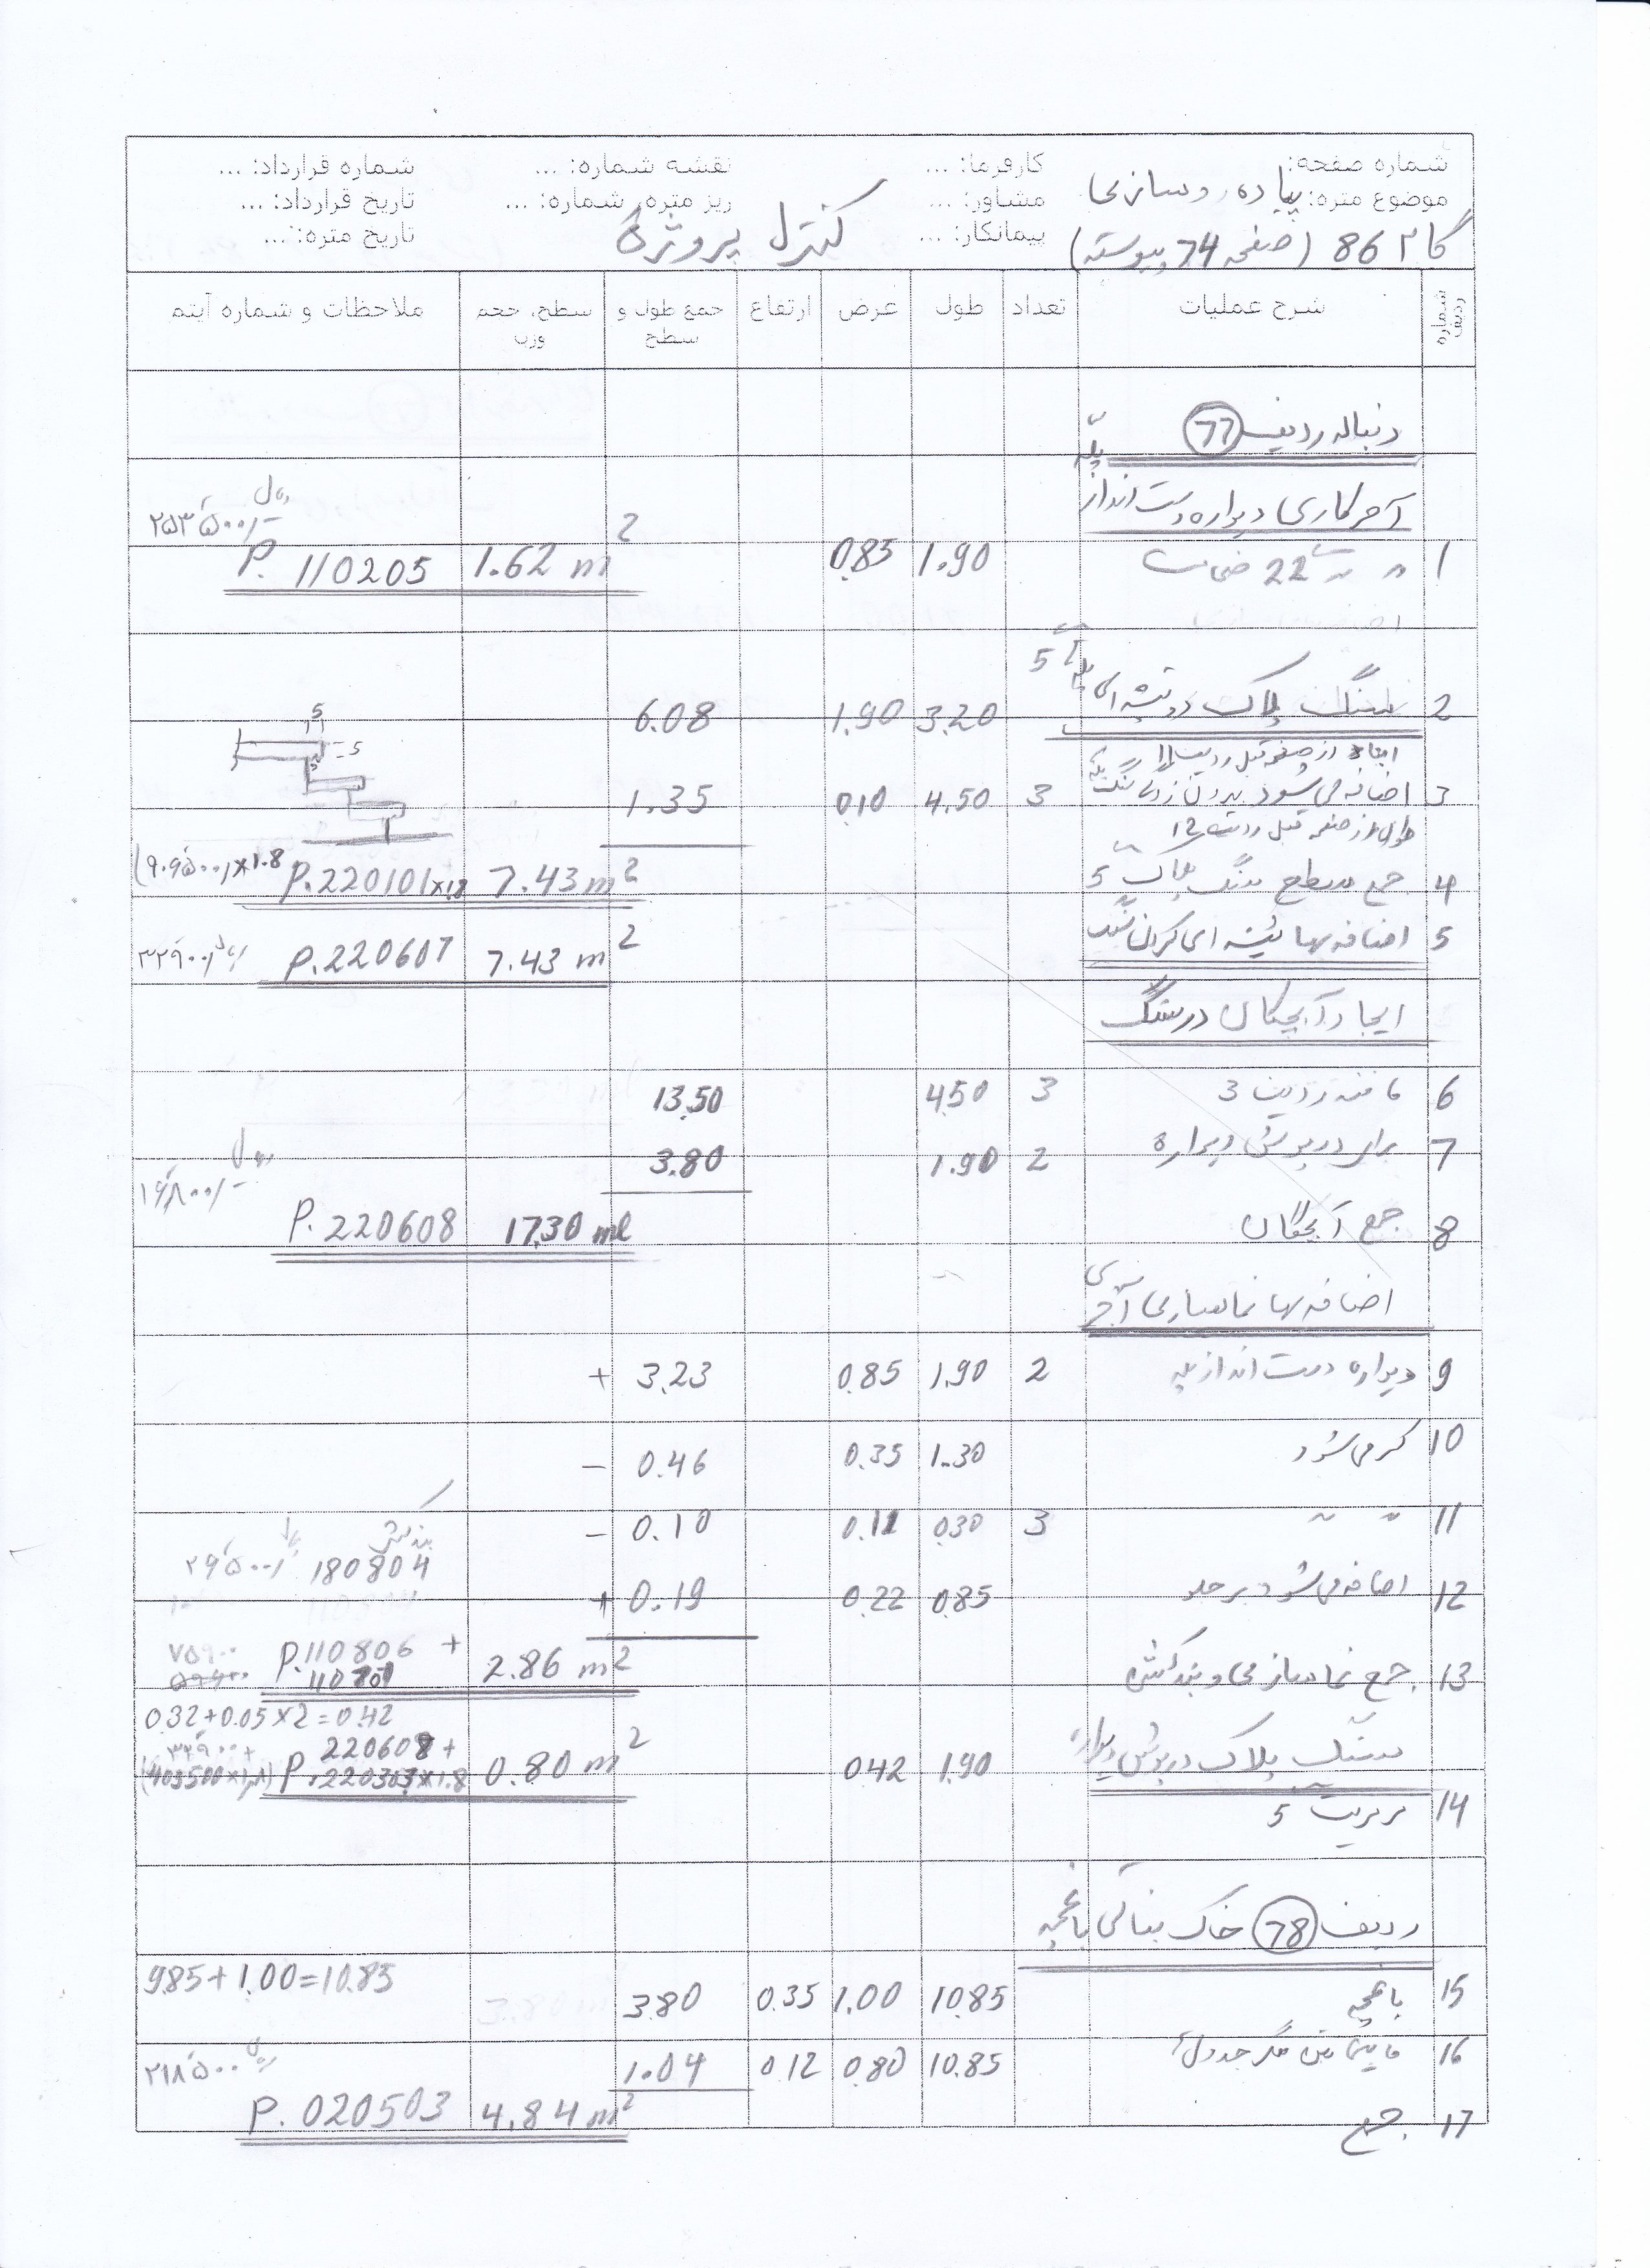 شماره صفحه: کارفرما: ... نقشه شماره: ... شماره قرارداد: ...
موضوع متره: پیاده روسازی مشاور: ... ریز متره، شماره: ... تاریخ قرارداد: ...
گام 86 (صفحه 74 پیوسته) پیمانکار: ... کنترل پروژه تاریخ متره: ...
شماره ردیف شرح عملیات تعداد طول عرض ارتفاع جمع طول و سطح سطح، حجم وزن ملاحظات و شماره آیتم
دنباله ردیف 77 پله
آجرکاری دیواره دست انداز
۲۵۳۵۰۰/- ریال
1 22 ضخامت 1.90 0.85 1.62 m2 P. 110205
2 سنگ پلاک دو تیشه ای 5 3.20 1.90 6.08
5
5
از صفحه قبل ردیف 11
3 اضافه می شود 3 4.50 0.10 1.35
از صفحه قبل ردیف 12
4 جمع سطح سنگ پلاک 5 7.43 m2 P.220101×1.8 (۹۰۹۵۰۰/)×1.8
5 اضافه بها تیشه ای کردن سنگ 7.43 m2 P.220607 ۳۳۹۰۰/ ریال
ایجاد آبچکان در سنگ
6 مانند ردیف 3 3 4.50 13.50
7 برای درپوش دیواره 2 1.90 3.80
۱۶۸۰۰/- ریال
8 جمع آبچکان 17.30 ml P. 220608
اضافه بها نماسازی آجر
9 دیواره دست انداز پله 2 1.90 0.85 3.23 +
10 کم می شود 1.30 0.35 0.46 -
11 " " 3 0.30 0.11 0.10 -
بندکشی
180804 ۲۹۵۰۰/
12 اضافه می شود 0.85 0.22 0.19 +
13 جمع نماسازی و بندکشی 2.86 m2 P.110806 + ۷۵۹۰۰
0.32+0.05×2=0.42
سنگ پلاک درپوش دیواره 1.90 0.42 0.80 m2 P. 220608 + 220303×1.8
14 5
ردیف 78 خاک نباتی باغچه
9.85+1.00=10.85
15 باغچه 10.85 1.00 0.35 3.80
16 10.85 0.80 0.12 1.04
۲۱۸۵۰۰ ریال
17 جمع 4.84 m2 P. 020503